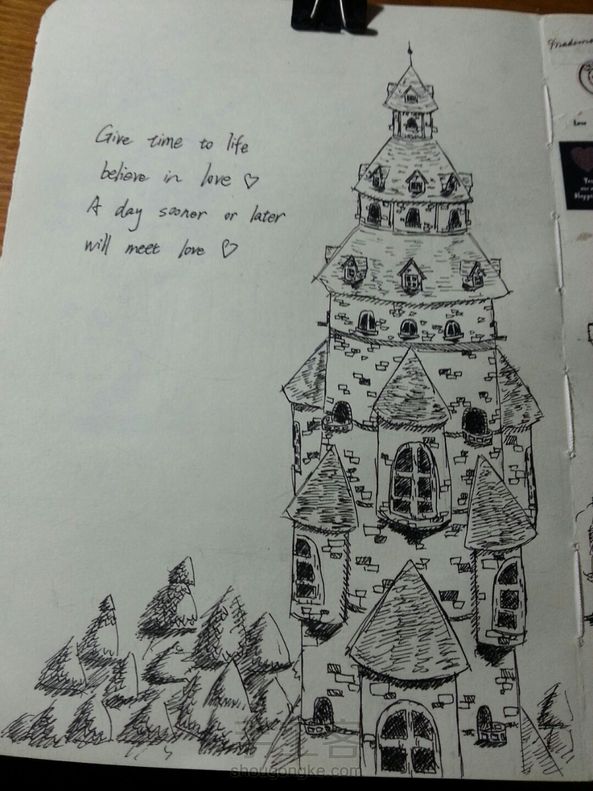 Give time to life
believe in love ♡
A day sooner or later
will meet love ♡
shougongke.com